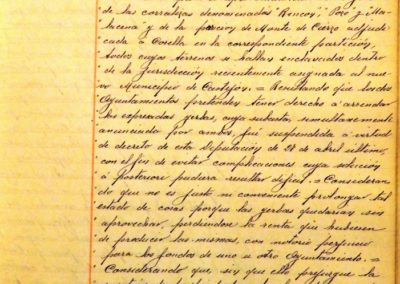 de las corralizas denominadas "Rincon", "Pozo" y "Villa-
lucena" y de la porcion de Monte de Cierzo adjudi-
cada a Corella en la correspondiente particion,
todos cuyos terrenos se hallan enclavados dentro
de la jurisdiccion recientemente asignada al nue-
vo Municipio de Castejon. = Resultando que dichos
Ayuntamientos pretenden tener derecho á arrendar
las expresadas yerbas, cuya subasta simultaneamente
anunciada por ambos, fué suspendida á virtud
de decreto de esta Diputacion de 28 de abril último,
con el fin de evitar complicaciones cuya solucion
á posteriori pudiera resultar dificil. = Consideran
do que no es justo ni conveniente prolongar tal
estado de cosas porque las yerbas quedarian sin
aprovechar, perdiendose la renta que hubiesen
de producir las mismas, con notorio perjuicio
para los fondos de uno u otro Ayuntamiento. =
Considerando que, sin que ello prejuzgue la